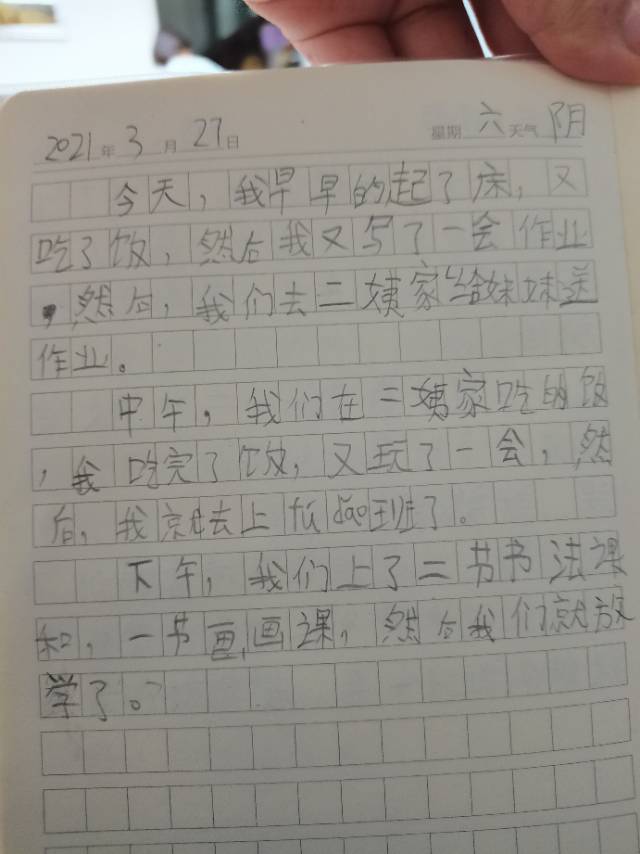 2021年3月27日 星期六天气阴
今天，我早早的起了床，又
吃了饭，然后我又写了一会作业
，然后，我们去二姨家给妹妹送
作业。
中午，我们在二姨家吃的饭
，我吃完了饭，又玩了一会，然
后，我就去上fudao班了。
下午，我们上了二节书法课
和，一节画画课，然后我们就放
学了。